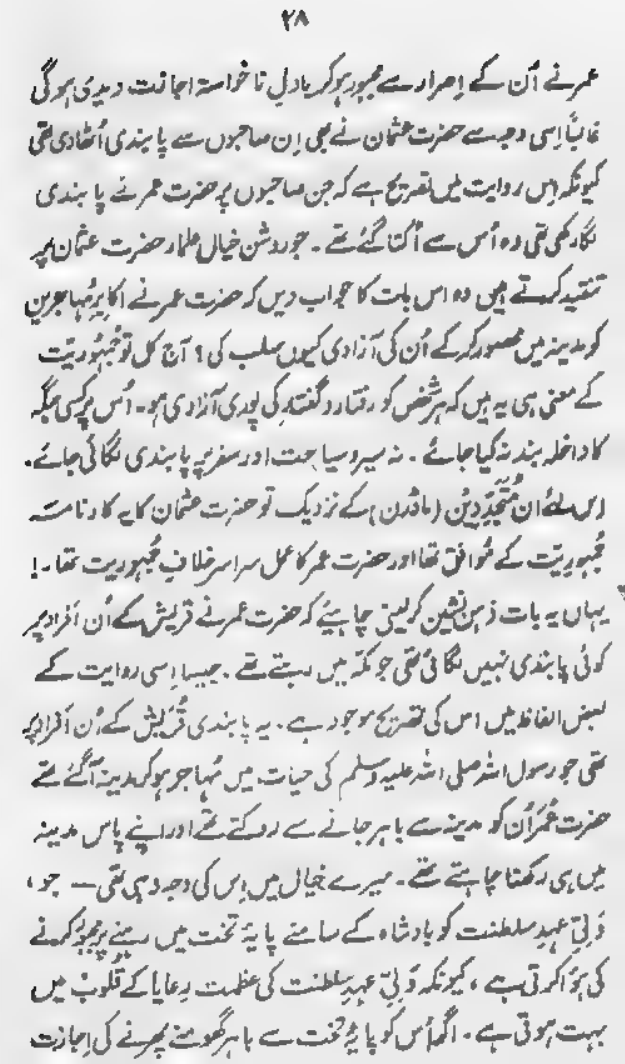 ۲۸
عمر نے اُن کے اِصرار سے مجبور ہو کر بادلِ ناخواستہ اجازت دیدی ہوگی
غالباً اِسی وجہ سے حضرت عثمان نے بھی اِن صاحبوں سے پابندی اُٹھادی تھی
کیونکہ اِس روایت میں تصریح ہے کہ جن صاحبوں پر حضرت عمر نے پابندی
لگا رکھی تھی وہ اُس سے اُکتا گئے تھے ۔ جو روشن خیال علماء حضرت عثمان پر
تنقید کرتے ہیں وہ اس بات کا جواب دیں کہ حضرت عمر نے اکابرِ مُہاجرین
کو مدینہ میں محصور کر کے اُن کی آزادی کیوں سلب کی ؟ آج کل تو جُمہُوریّت
کے معنی ہی یہ ہیں کہ ہر شخص کو رفتار و گفتار کی پوری آزادی ہو ۔ اُس پر کسی جگہ
کا داخلہ بند نہ کیا جائے ۔ نہ سیر و سیاحت اور سفر پر پابندی لگائی جائے ۔
اِس لئے اُن مُتَجَدِّدِین (ماڈرن) کے نزدیک تو حضرت عثمان کا یہ کارنامہ
جُمہوریّت کے مُوافق تھا اور حضرت عمر کا عمل سراسر خلافِ جُمہوریت تھا ۔!
یہاں یہ بات ذہن نشین کر لینی چاہیئے کہ حضرت عمر نے قریش کے اُن اَفراد پر
کوئی پابندی نہیں لگائی تھی جو مکّہ میں رہتے تھے ۔ جیسا اِسی روایت کے
بعض الفاظ میں اس کی تصریح موجود ہے ۔ یہ پابندی قُریش کے اُن اَفراد پر
تھی جو رسول اللہ صلی اللہ علیہ وسلم کی حیات میں مُہاجر ہو کر مدینہ آگئے تھے
حضرت عُمَر اُن کو مدینہ سے باہر جانے سے روکتے تھے اور اپنے پاس مدینہ
میں ہی رکھنا چاہتے تھے ۔ میرے خیال میں اِس کی وجہ وہی تھی — جو ،
وَلیِّ عہدِ سلطنت کو بادشاہ کے سامنے پایۂ تخت میں رہنے پر مجبُور کرنے
کی ہُوَا کرتی ہے ، کیونکہ وَلیِّ عہدِ سلطنت کی عظمت رِعایا کے قُلوبْ میں
بہت ہوتی ہے ۔ اگر اُس کو پایۂ تخت سے باہر گھومنے پھرنے کی اِجازت